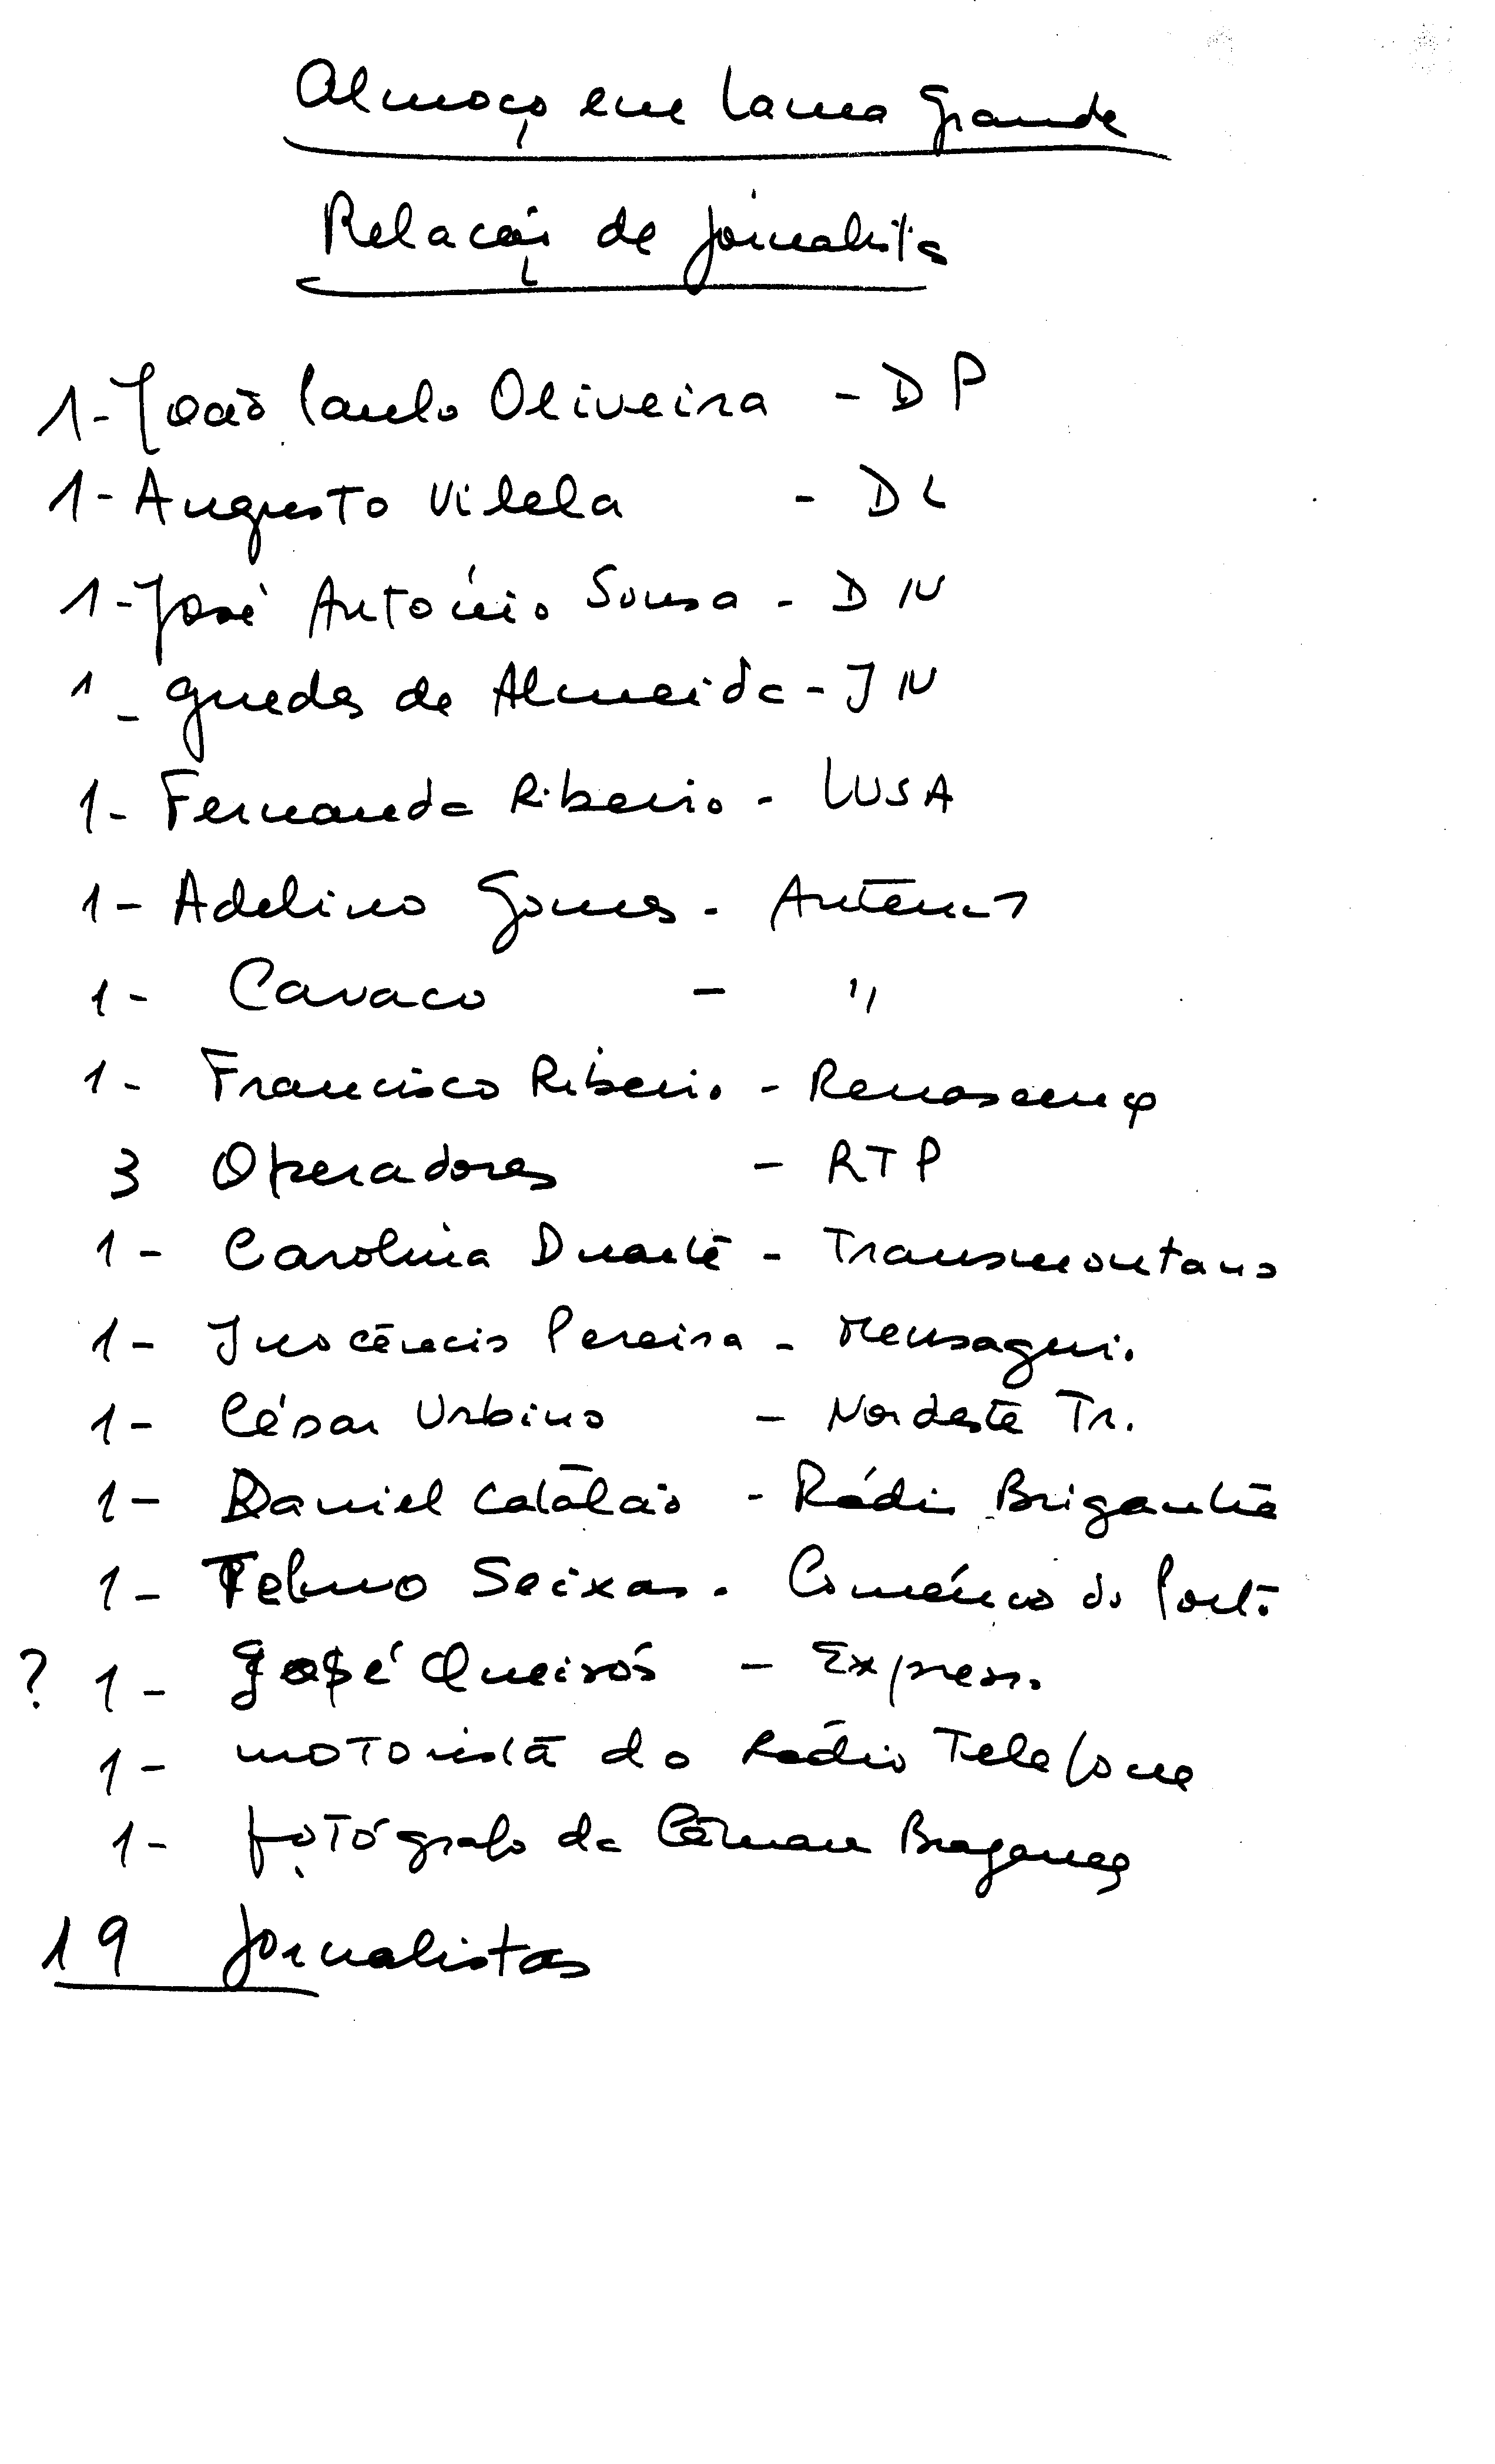 Almoço em Lama Grande
Relação de Jornalistas
1- João Paulo Oliveira - DP
1- Augusto Vilela - DL
1- José António Sousa - DN
1 - Guedes de Almeida - JN
1- Fernanda Ribeiro - LUSA
1- Adelino Gomes - Antena 1
1- Cavaco - "
1- Francisco Ribeiro - Renascença
3 Operadores - RTP
1- Carolina Duarte - Transmontano
1- Inocêncio Pereira - Mensageiro
1- César Urbino - Nordeste Tr.
1- Daniel Catalão - Rádio Brigantia
1- Telmo Seixas - Comércio do Porto
? 1- José Queirós - Expresso
1- motorista do Rádio Telefone
1- fotógrafo da Câmara Bragança
19 Jornalistas